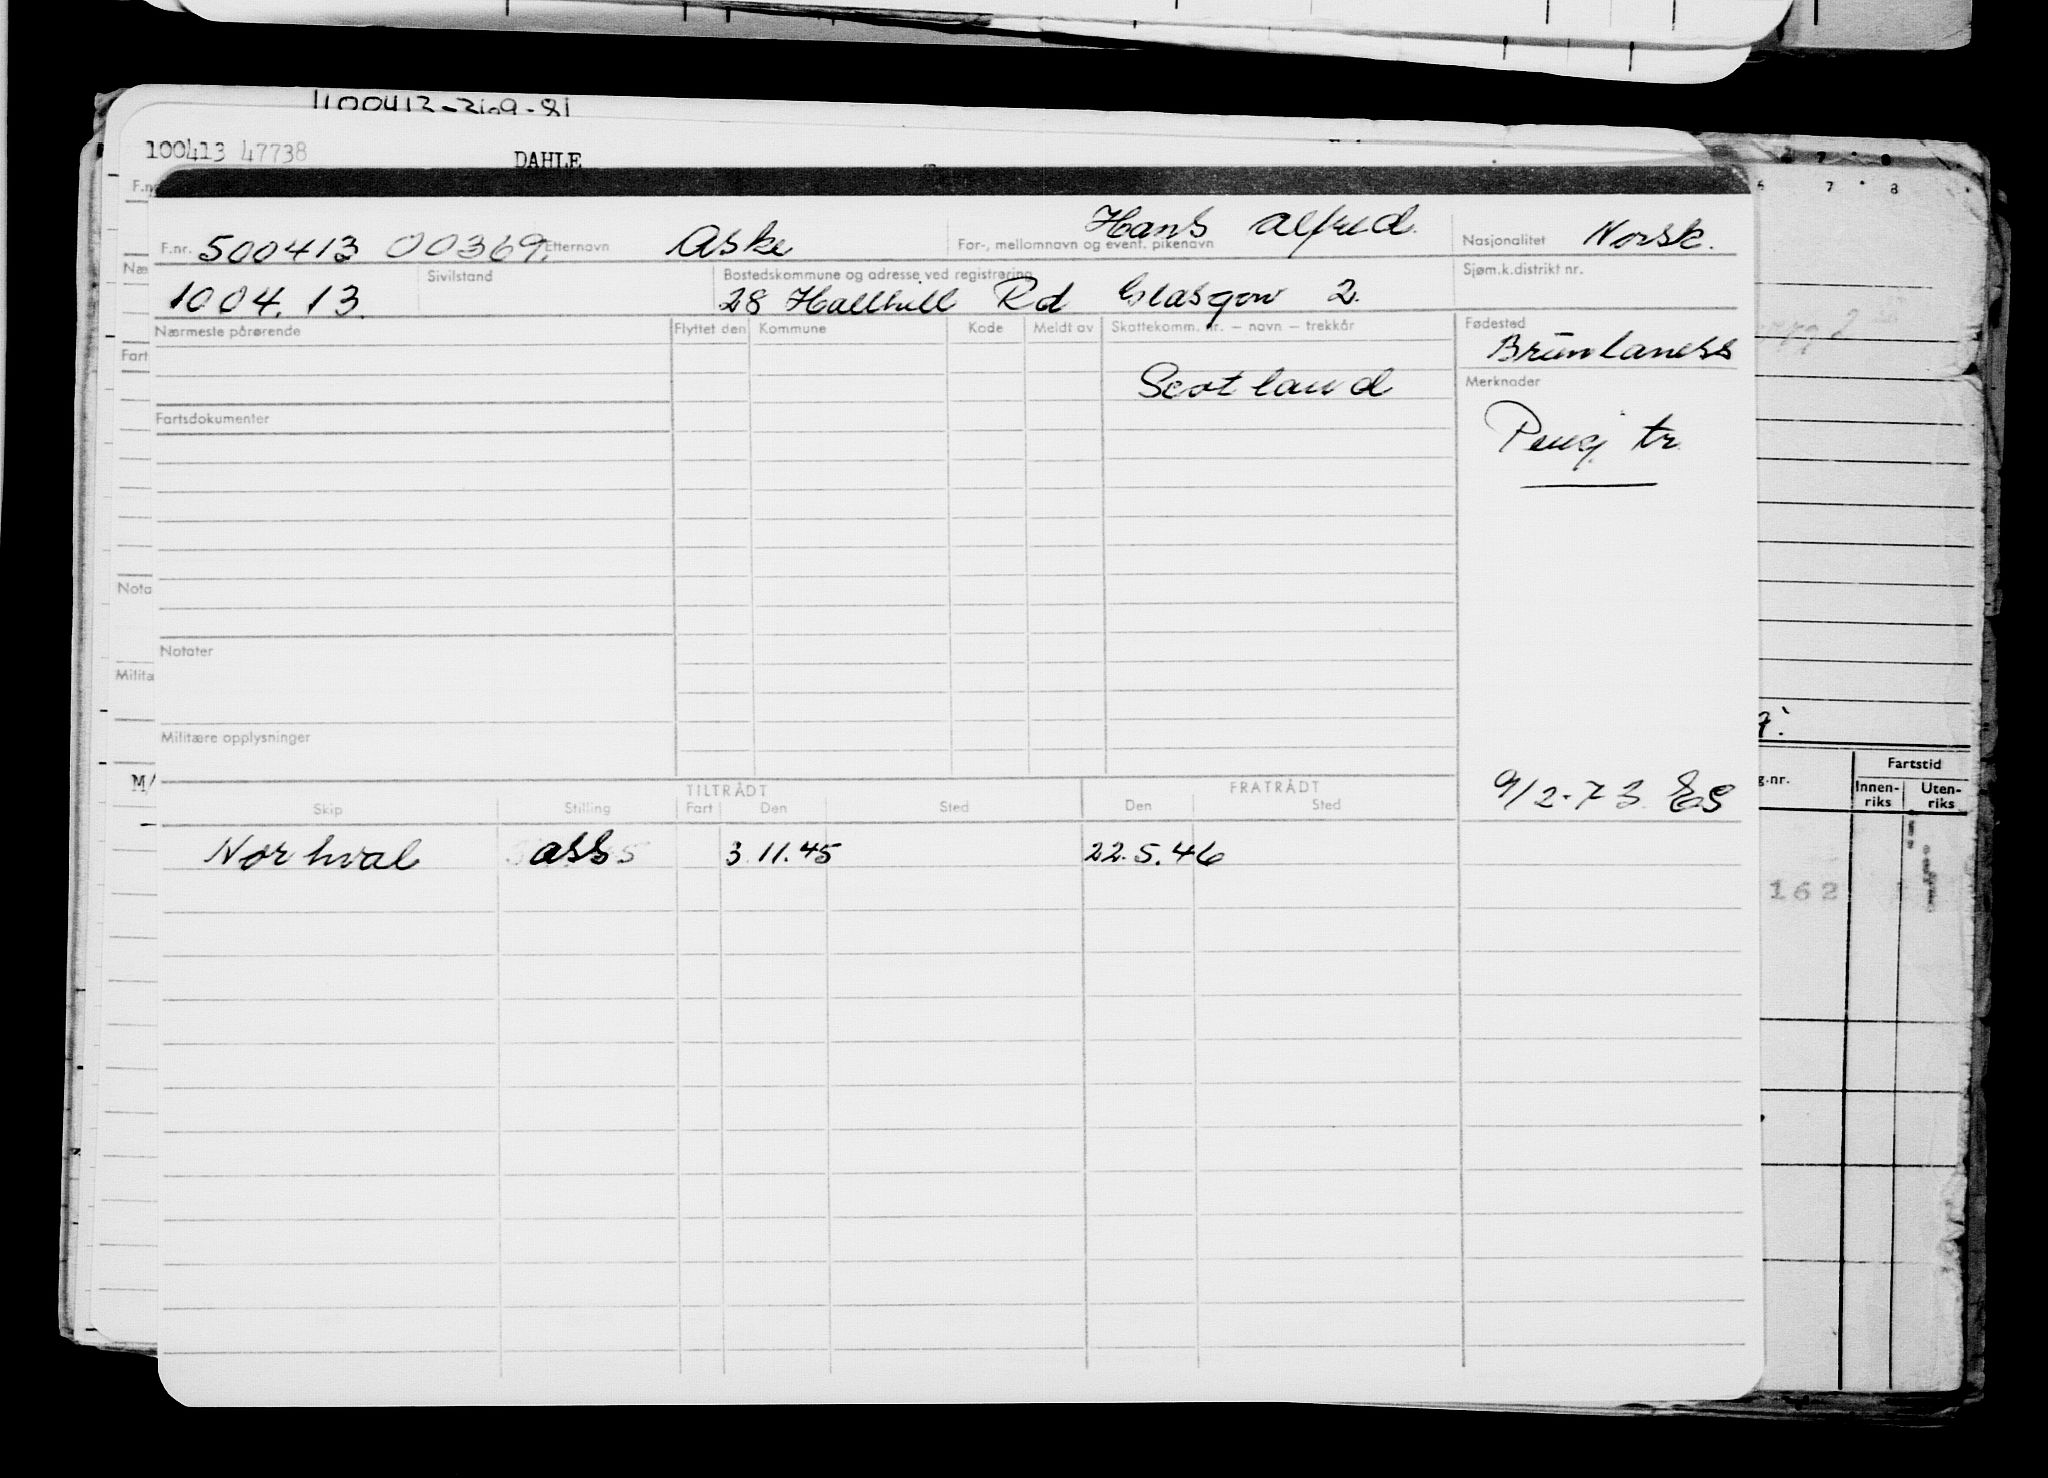 100413 47738
DAHLE
F.nr. 500413 00369. Etternavn Aske For-, mellomnavn og event. pikenavn Hans Alfred. Nasjonalitet Norsk.
1004.13. Sivilstand Bostedskommune og adresse ved registrering 28 Hallhill Rd Glasgow 2. Sjøm.k.distrikt nr.
Nærmeste pårørende Flyttet den Kommune Kode Meldt av Skattekomm. nr. — navn — trekkår Fødested
Brunlaness
Scotland Merknader
Fartsdokumenter
tr.
Notater
Militære opplysninger
9/2-73. ES
TILTRÅDT FRATRÅDT
Skip Stilling Fart Den Sted Den Sted
Norhval ass 3.11.45 22.5.46
Næ
Fart
Nota
Milita
M/
6 7 8
g.nr. Fartstid
Innen-riks Uten-riks
162